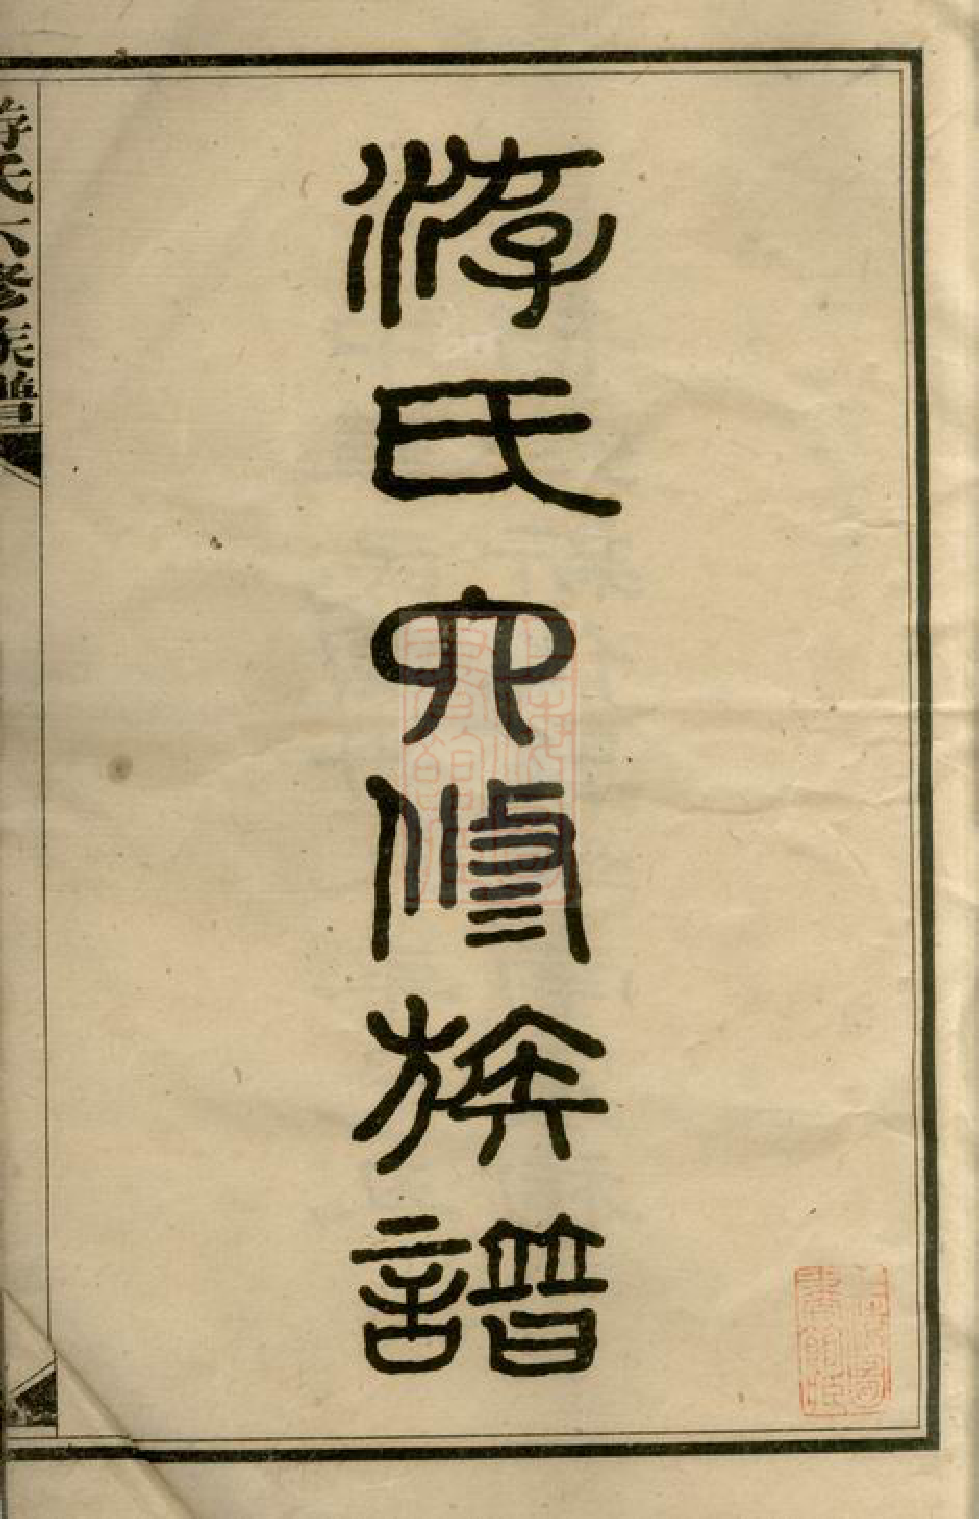 游氏六修族譜
游氏六修族譜